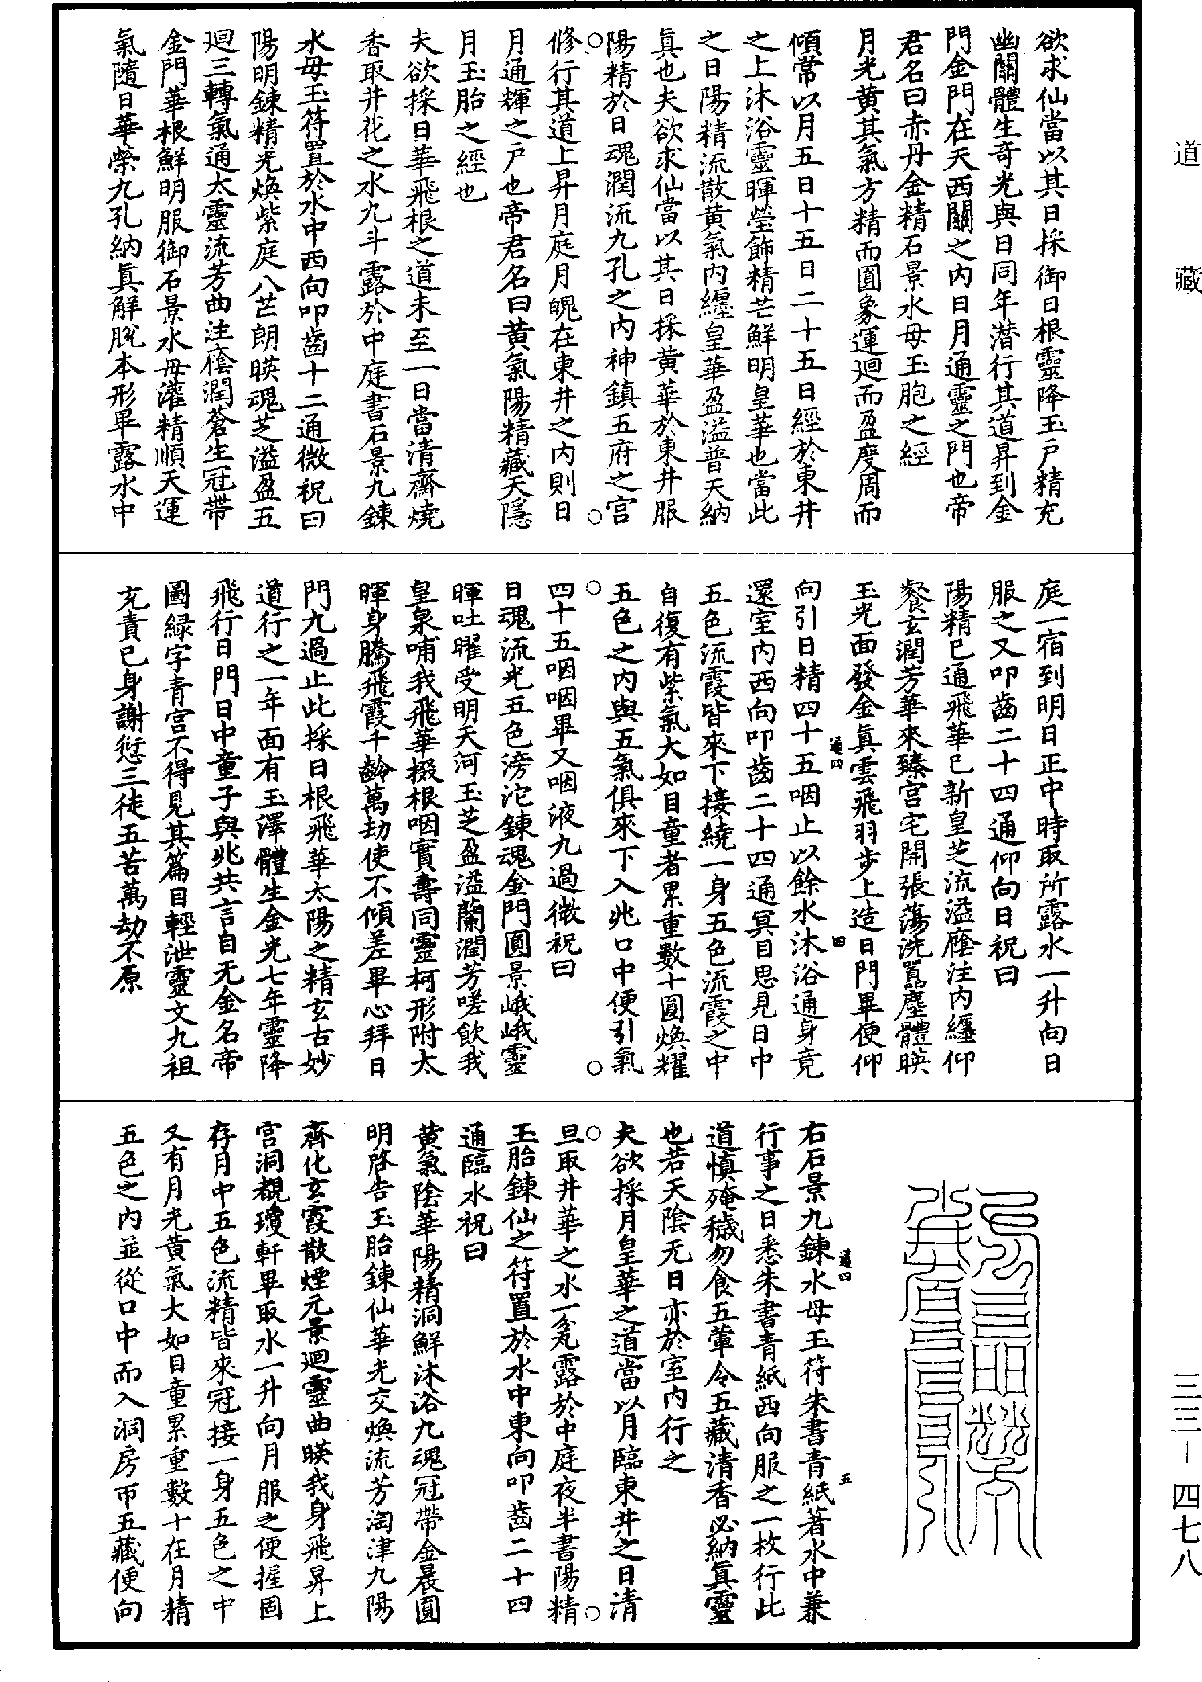 道藏
欲求仙當以其日採御日根靈降玉戶精充
幽關體生奇光與日同年潛行其道昇到金
門金門在天西關之內日月通靈之門也帝
君名曰赤丹金精石景水母玉胞之經
月光黃其氣方精而圓象運迴而盈度周而
傾常以月五日十五日二十五日經於東井
之上沐浴靈暉瑩飾精芒鮮明皇華也當此
之日陽精流散黃氣內纏皇華盈溢普天納
真也夫欲求仙當以其日採黃華於東井服
陽精於日魂潤流九孔之內神鎮五府之宮
修行其道上昇月庭月魄在東井之內則日
月通輝之戶也帝君名曰黃氣陽精藏天隱
月玉胎之經也
夫欲採日華飛根之道未至一日當清齋燒
香取井花之水九斗露於中庭書石景九鍊
水母玉符置於水中西向叩齒十二通微祝曰
陽明鍊精光煥紫庭八芒朗暎魂芝溢盈五
迴三轉氣通太靈流芳曲注蔭潤蒼生冠帶
金門華根鮮明服御石景水母灌精順天運
氣隨日華榮九孔納真解脫本形畢露水中
庭一宿到明日正中時取所露水一升向日
服之又叩齒二十四通仰向日祝曰
陽精已通飛華已新皇芝流溢蔭注內纏仰
餐玄潤芳華來臻宮宅開張蕩洗囂塵體暎
玉光面發金真雲飛羽步上造日門畢便仰
向引日精四十五咽止以餘水沐浴通身竟
還室內西向叩齒二十四通冥目思見日中
五色流霞皆來下接繞一身五色流霞之中
自復有紫氣大如目童者累重數十圓煥耀
五色之內與五氣俱來下入兆口中便引氣
四十五咽咽畢又咽液九過微祝曰
日魂流光五色滂沱鍊魂金門圓景峨峨靈
暉吐曜受明天河玉芝盈溢蘭潤芳嗟飲我
皇泉哺我飛華掇根咽實壽同靈柯形附太
暉身騰飛霞千齡萬劫使不傾差畢心拜日
門九過止此採日根飛華太陽之精玄古妙
道行之一年面有玉澤體生金光七年靈降
飛行日門日中童子與兆共言自无金名帝
圖綠字青宮不得見其篇目輕泄靈文九祖
充責己身謝愆三徒五苦萬劫不原
右石景九鍊水母玉符朱書青紙著水中兼
行事之日悉朱書青紙西向服之一枚行此
道慎殗穢勿食五葷令五藏清香必納真靈
也若天陰无日亦於室內行之
夫欲採月皇華之道當以月臨東井之日清
旦取井華之水一瓮露於中庭夜半書陽精
玉胎鍊仙之符置於水中東向叩齒二十四
通臨水祝曰
黃氣陰華陽精洞鮮沐浴九魂冠帶金晨圓
明啓告玉胎鍊仙華光交煥流芳淘津九陽
齊化玄霞散煙元景迴靈曲暎我身飛昇上
宮洞覩瓊軒畢取水一升向月服之便握固
存月中五色流精皆來冠接一身五色之中
又有月光黃氣大如目童累重數十在月精
五色之內並從口中而入洞房帀五藏便向
三三－四七八